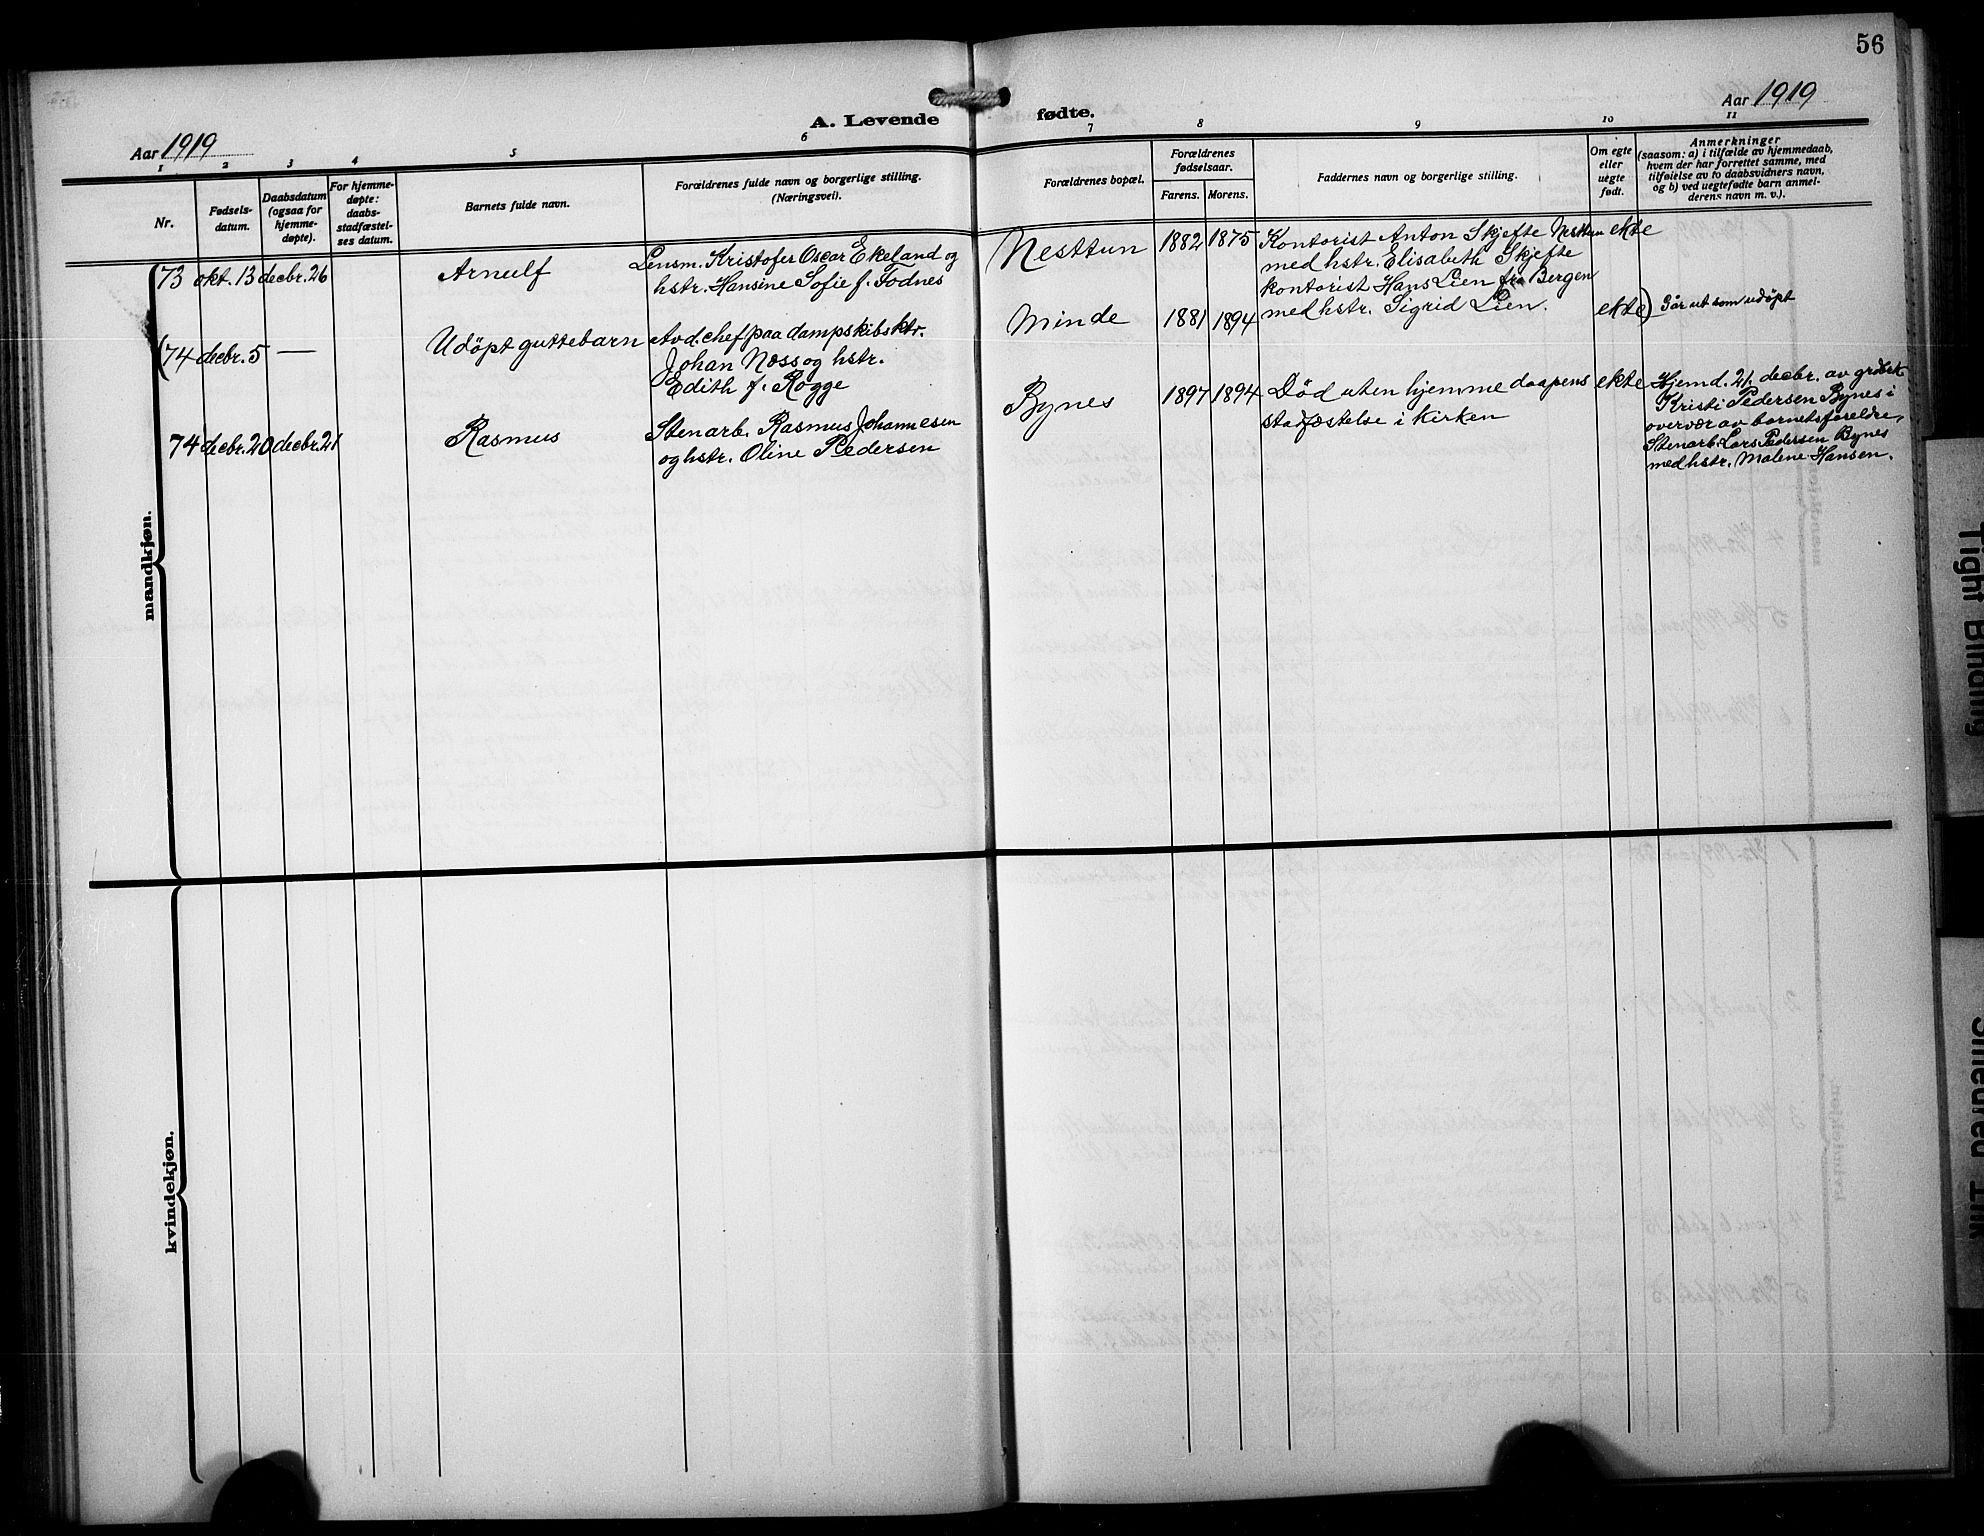 56
Aar 1919
A. Levende fødte.
Aar 1919
1 2 3 4 5 6 7 8 9 10 11
Nr.
Fødsels-
datum.
Daabsdatum
(ogsaa for
hjemme-
døpte).
For hjemme-
døpte:
daabs-
stadfæstel-
ses datum.
Barnets fulde navn.
Forældrenes fulde navn og borgerlige stilling.
(Næringsvei).
Forældrenes bopæl.
Forældrenes
fødselsaar.
Farens. Morens.
Faddernes navn og borgerlige stilling.
Om egte
eller
uegte
født.
Anmerkninger
(saasom: a) i tilfælde av hjemmedaab,
hvem der har forrettet samme, med
tilføielse av to daabsvidners navn,
og b) ved uegtefødte barn anmel-
derens navn m. v.).
mandkjøn.
73 okt. 13 decbr. 26
Arnulf
Lensm. Kristofer Oscar Ekeland og
hstr. Hansine Sofie f. Fodnes
Nesttun
1882 1875
Kontorist Anton Skjefte Nesttun
med hstr. Elisabeth Skjefte
kontorist Hans Lien fra Bergen
med hstr. Sigrid Lien.
ekte
(74 decbr. 5 —
Udöpt guttebarn
Avd. chef paa dampskibsktr.
Johan Næss og hstr.
Edith f. Rogge
Minde
1881 1894
ekte)
Går ut som udöpt
74 decbr. 20 decbr. 21
Rasmus
Stenarb. Rasmus Johannesen
og hstr. Oline Pedersen
Bynes
1897 1894
Död uten hjemmedaapens
stadfæstelse i kirken
ekte
Hjemd. 21. decbr. av
Kristi Pedersen Bynes i
overvær av barnets foreldre,
Stenarb. Lars Pedersen Bynes
med hstr. Malene Hansen.
kvindekjøn.
Tight Binding
Smeared Ink